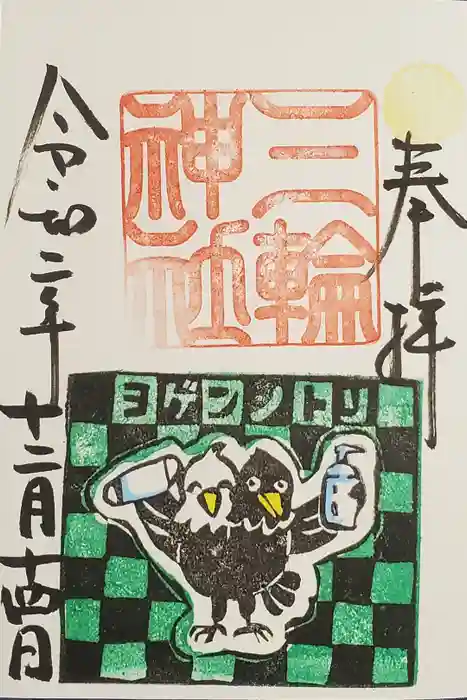 奉拝
三輪
神社
令和二年
十二月十四日
ヨゲンノトリ